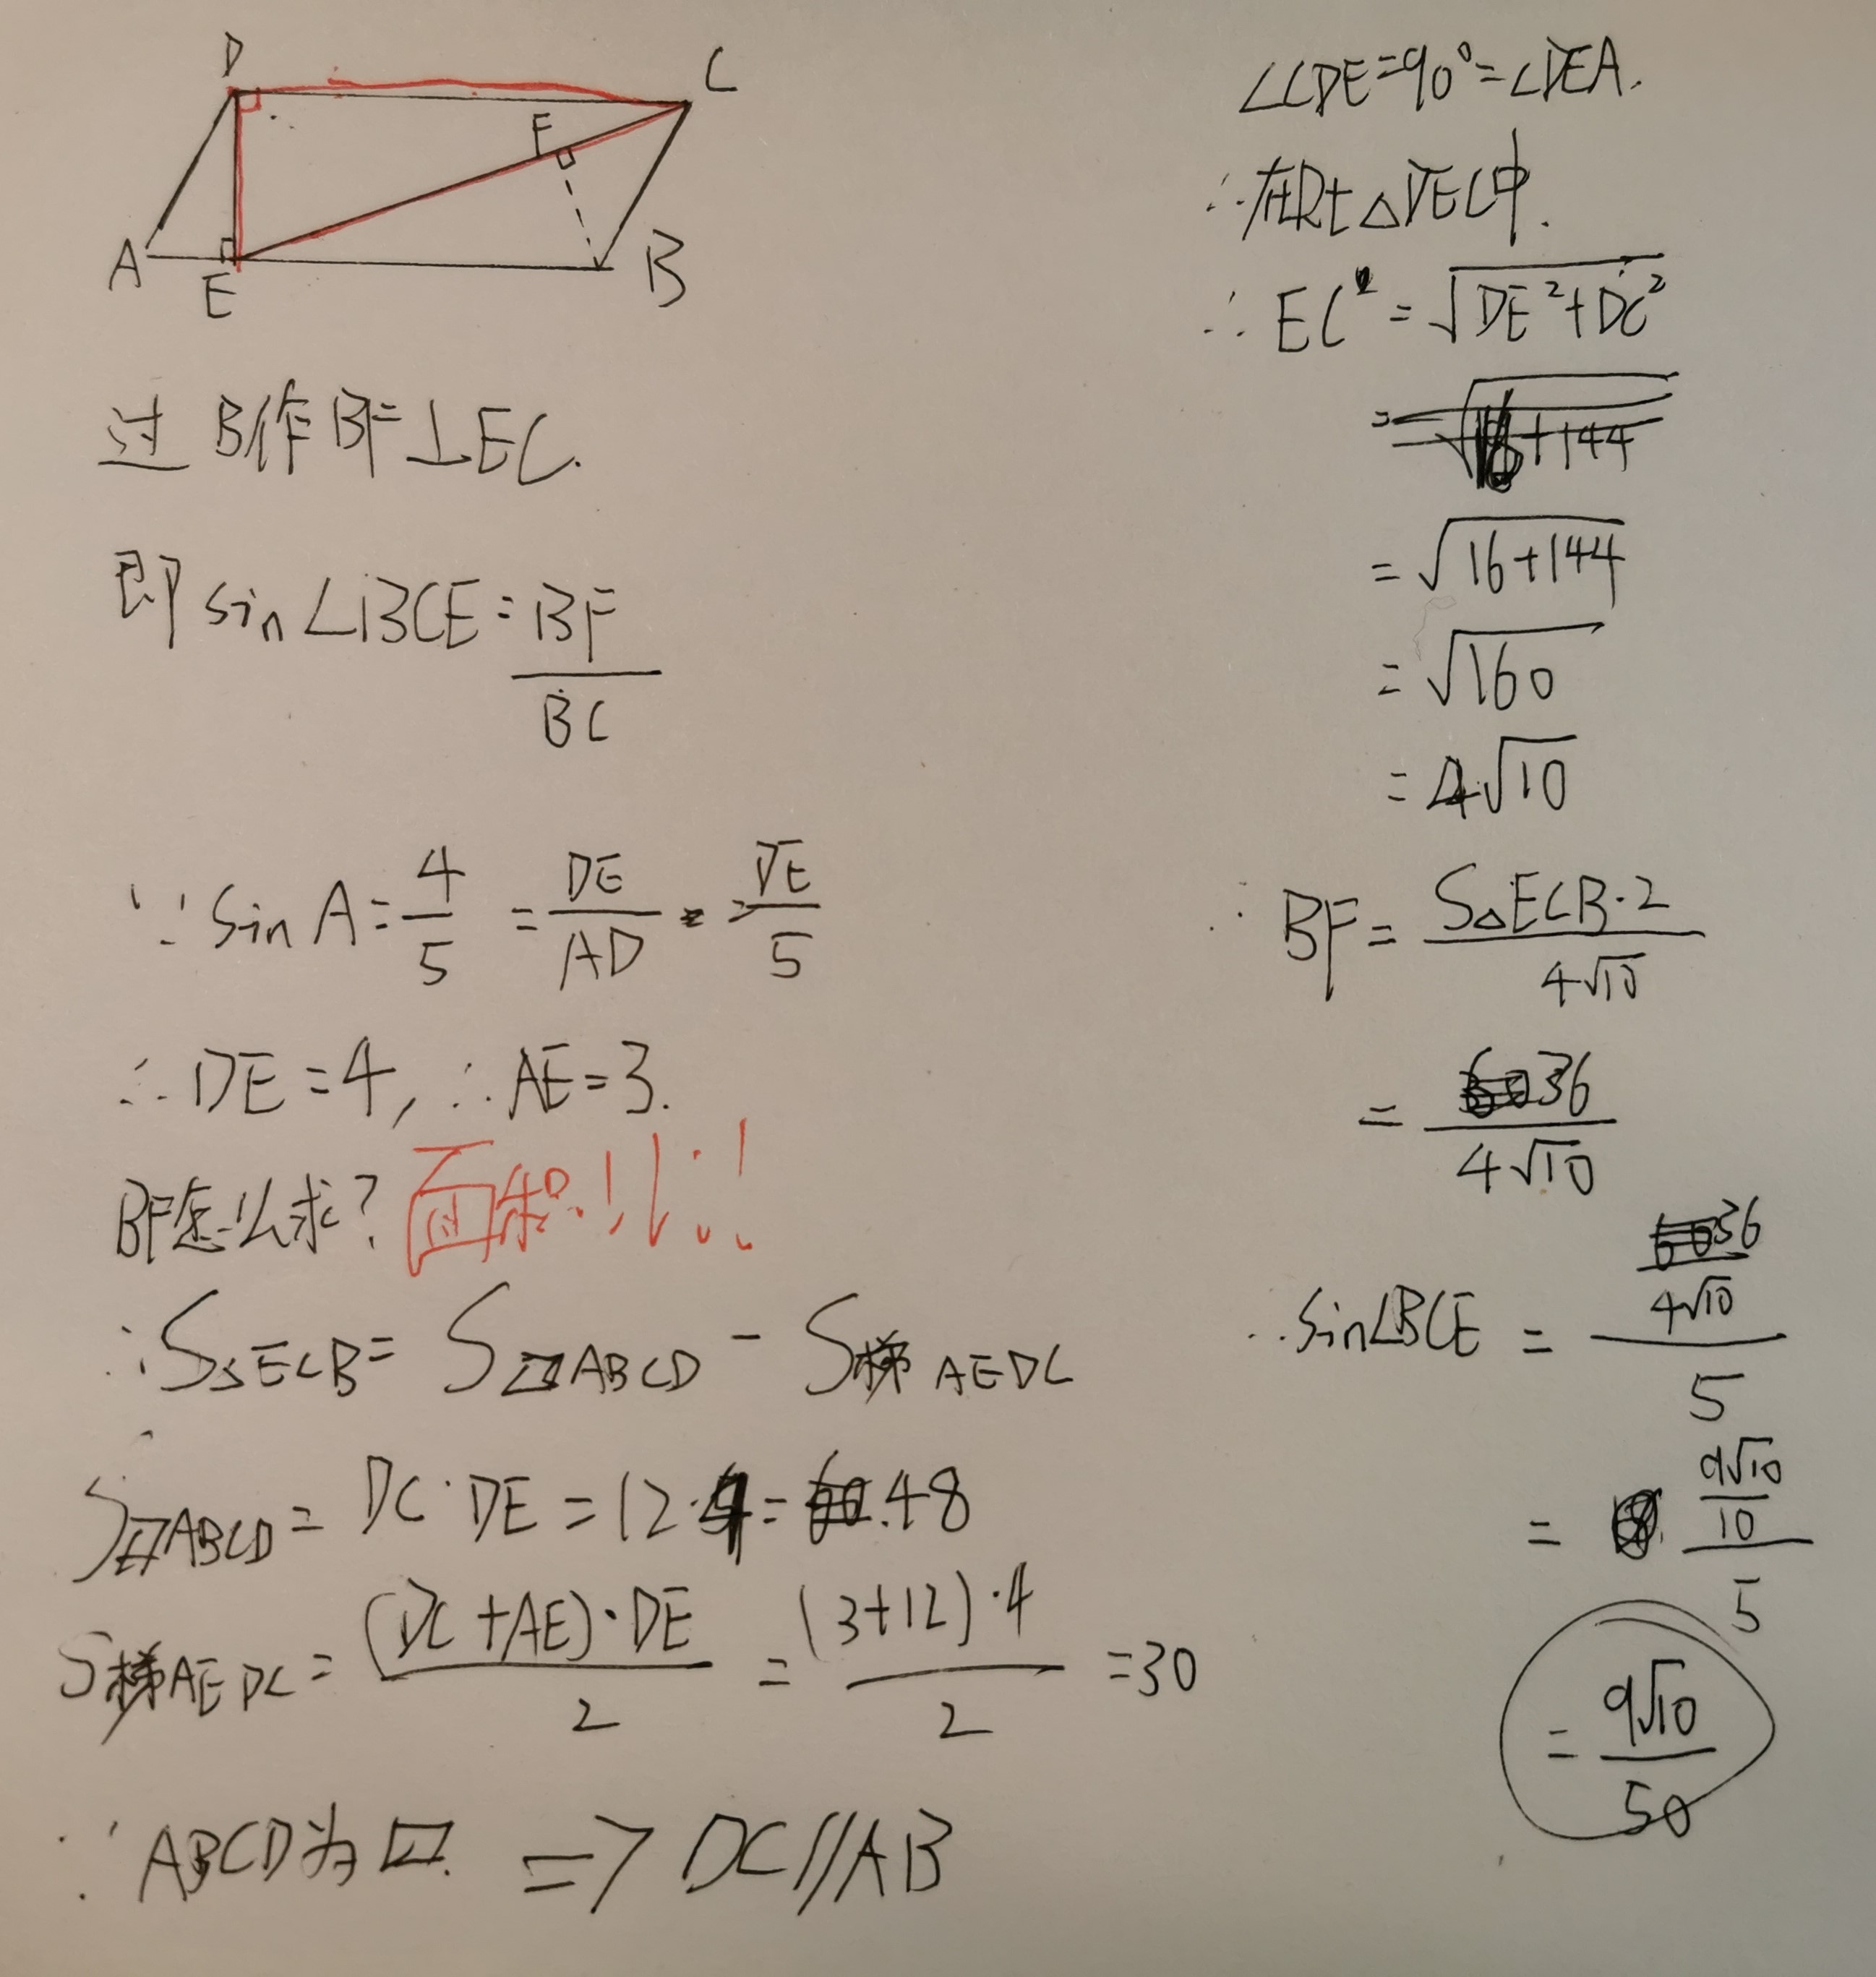 D C
F
A E B
过B作BF⊥EC.
即 sin∠BCE = BF/BC
∵ sin A = 4/5 = DE/AD = DE/5
∴ DE = 4, ∴ AE = 3.
BF怎么求? 面积!!!!
∴ S△ECB = S▱ABCD - S梯AEDC
S▱ABCD = DC·DE = 12·4 = 48
S梯AEDC = (DC+AE)·DE/2 = (3+12)·4/2 = 30
∵ ABCD为▱. => DC//AB
∠CDE=90°=∠DEA.
∴在Rt△DEC中.
∴ EC = √(DE²+DC²)
= √(16+144)
= √(16+144)
= √160
= 4√10
∴ BF = S△ECB·2/4√10
= 36/4√10
∴ sin∠BCE = (36/4√10)/5
= (9√10/10)/5
= 9√10/50